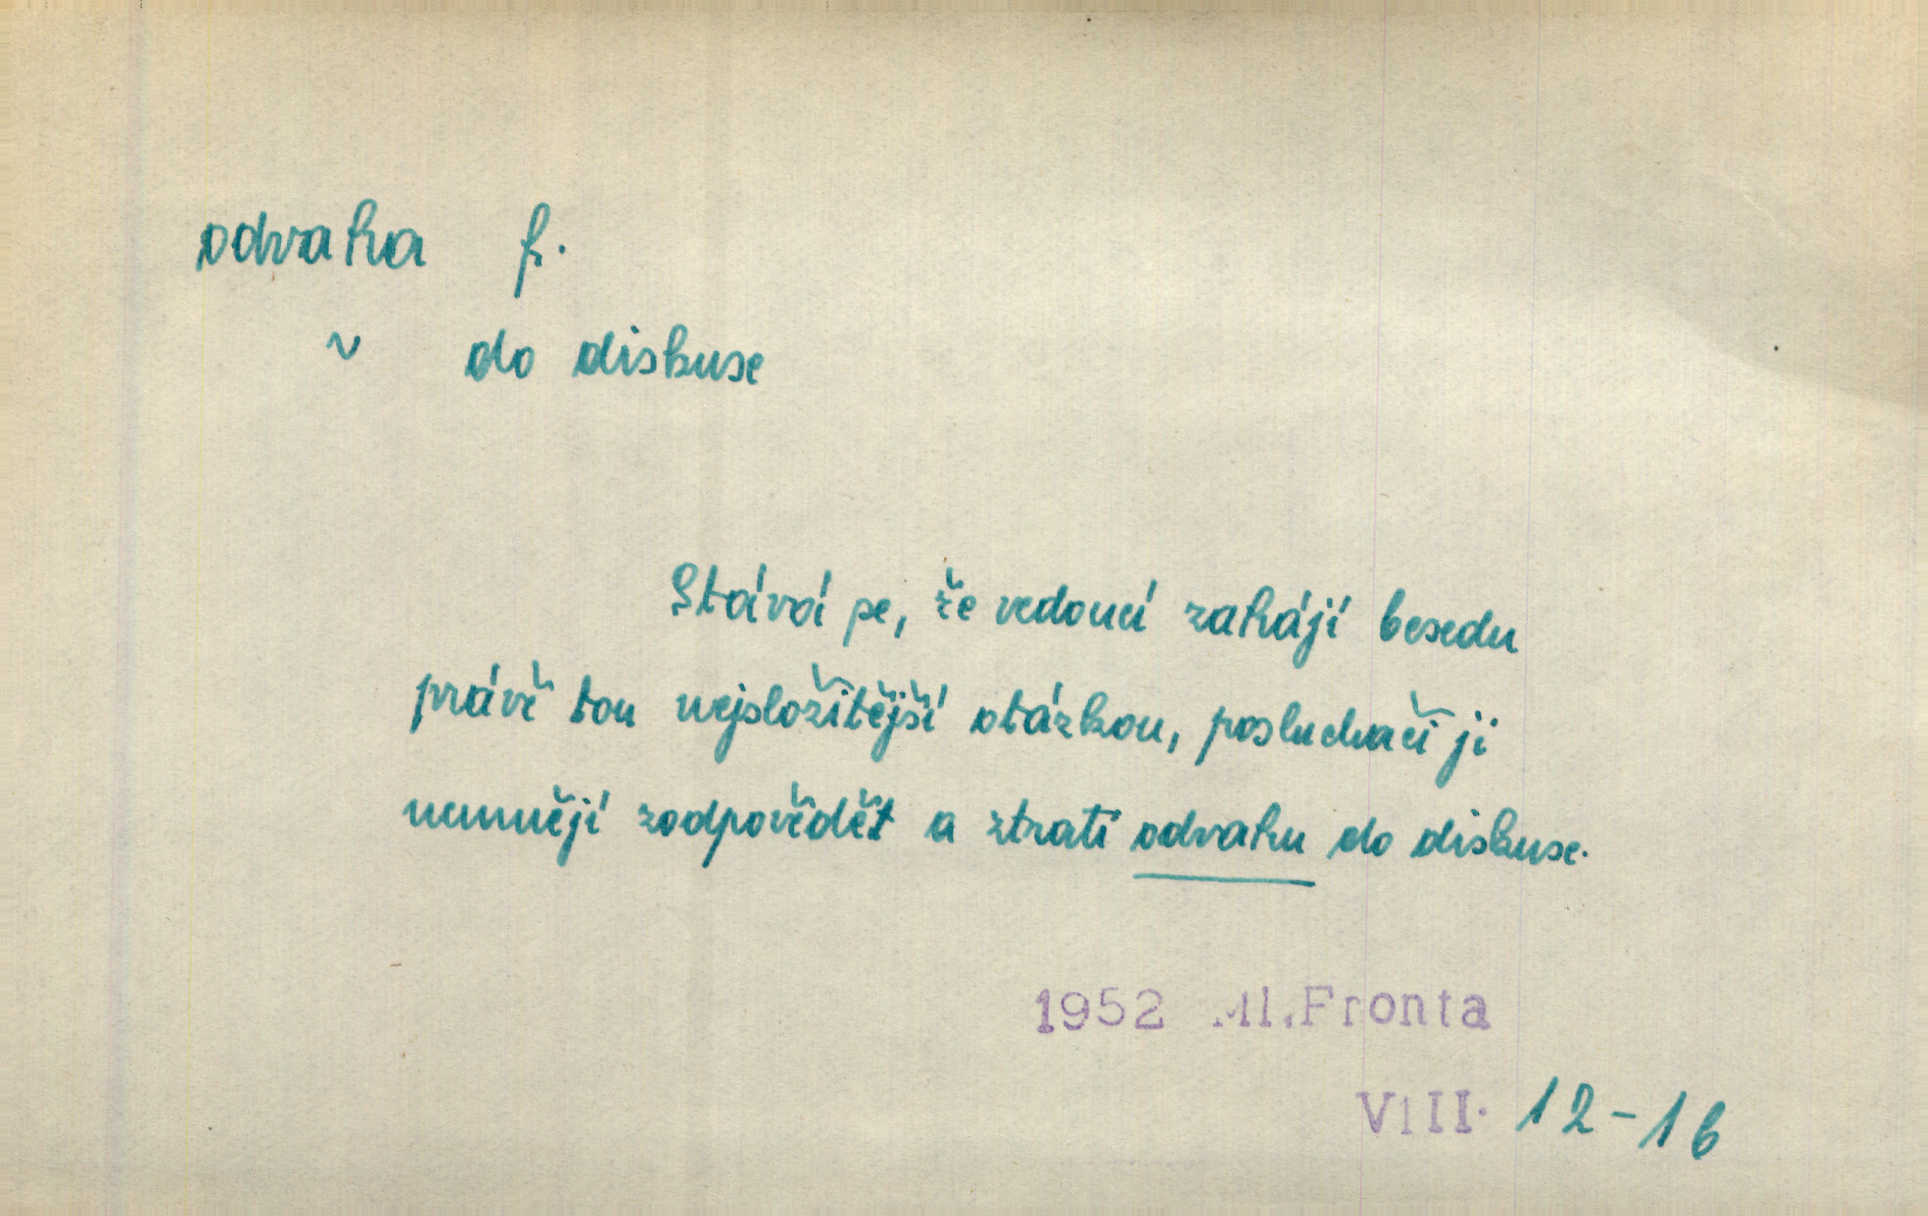 odvaha f.
~ do diskuse
Stává se, že vedoucí zahájí besedu
právě tou nejsložitější otázkou, posluchači ji
neumějí zodpovědět a ztratí odvahu do diskuse.
1952 Ml.Fronta
VIII. 12-16